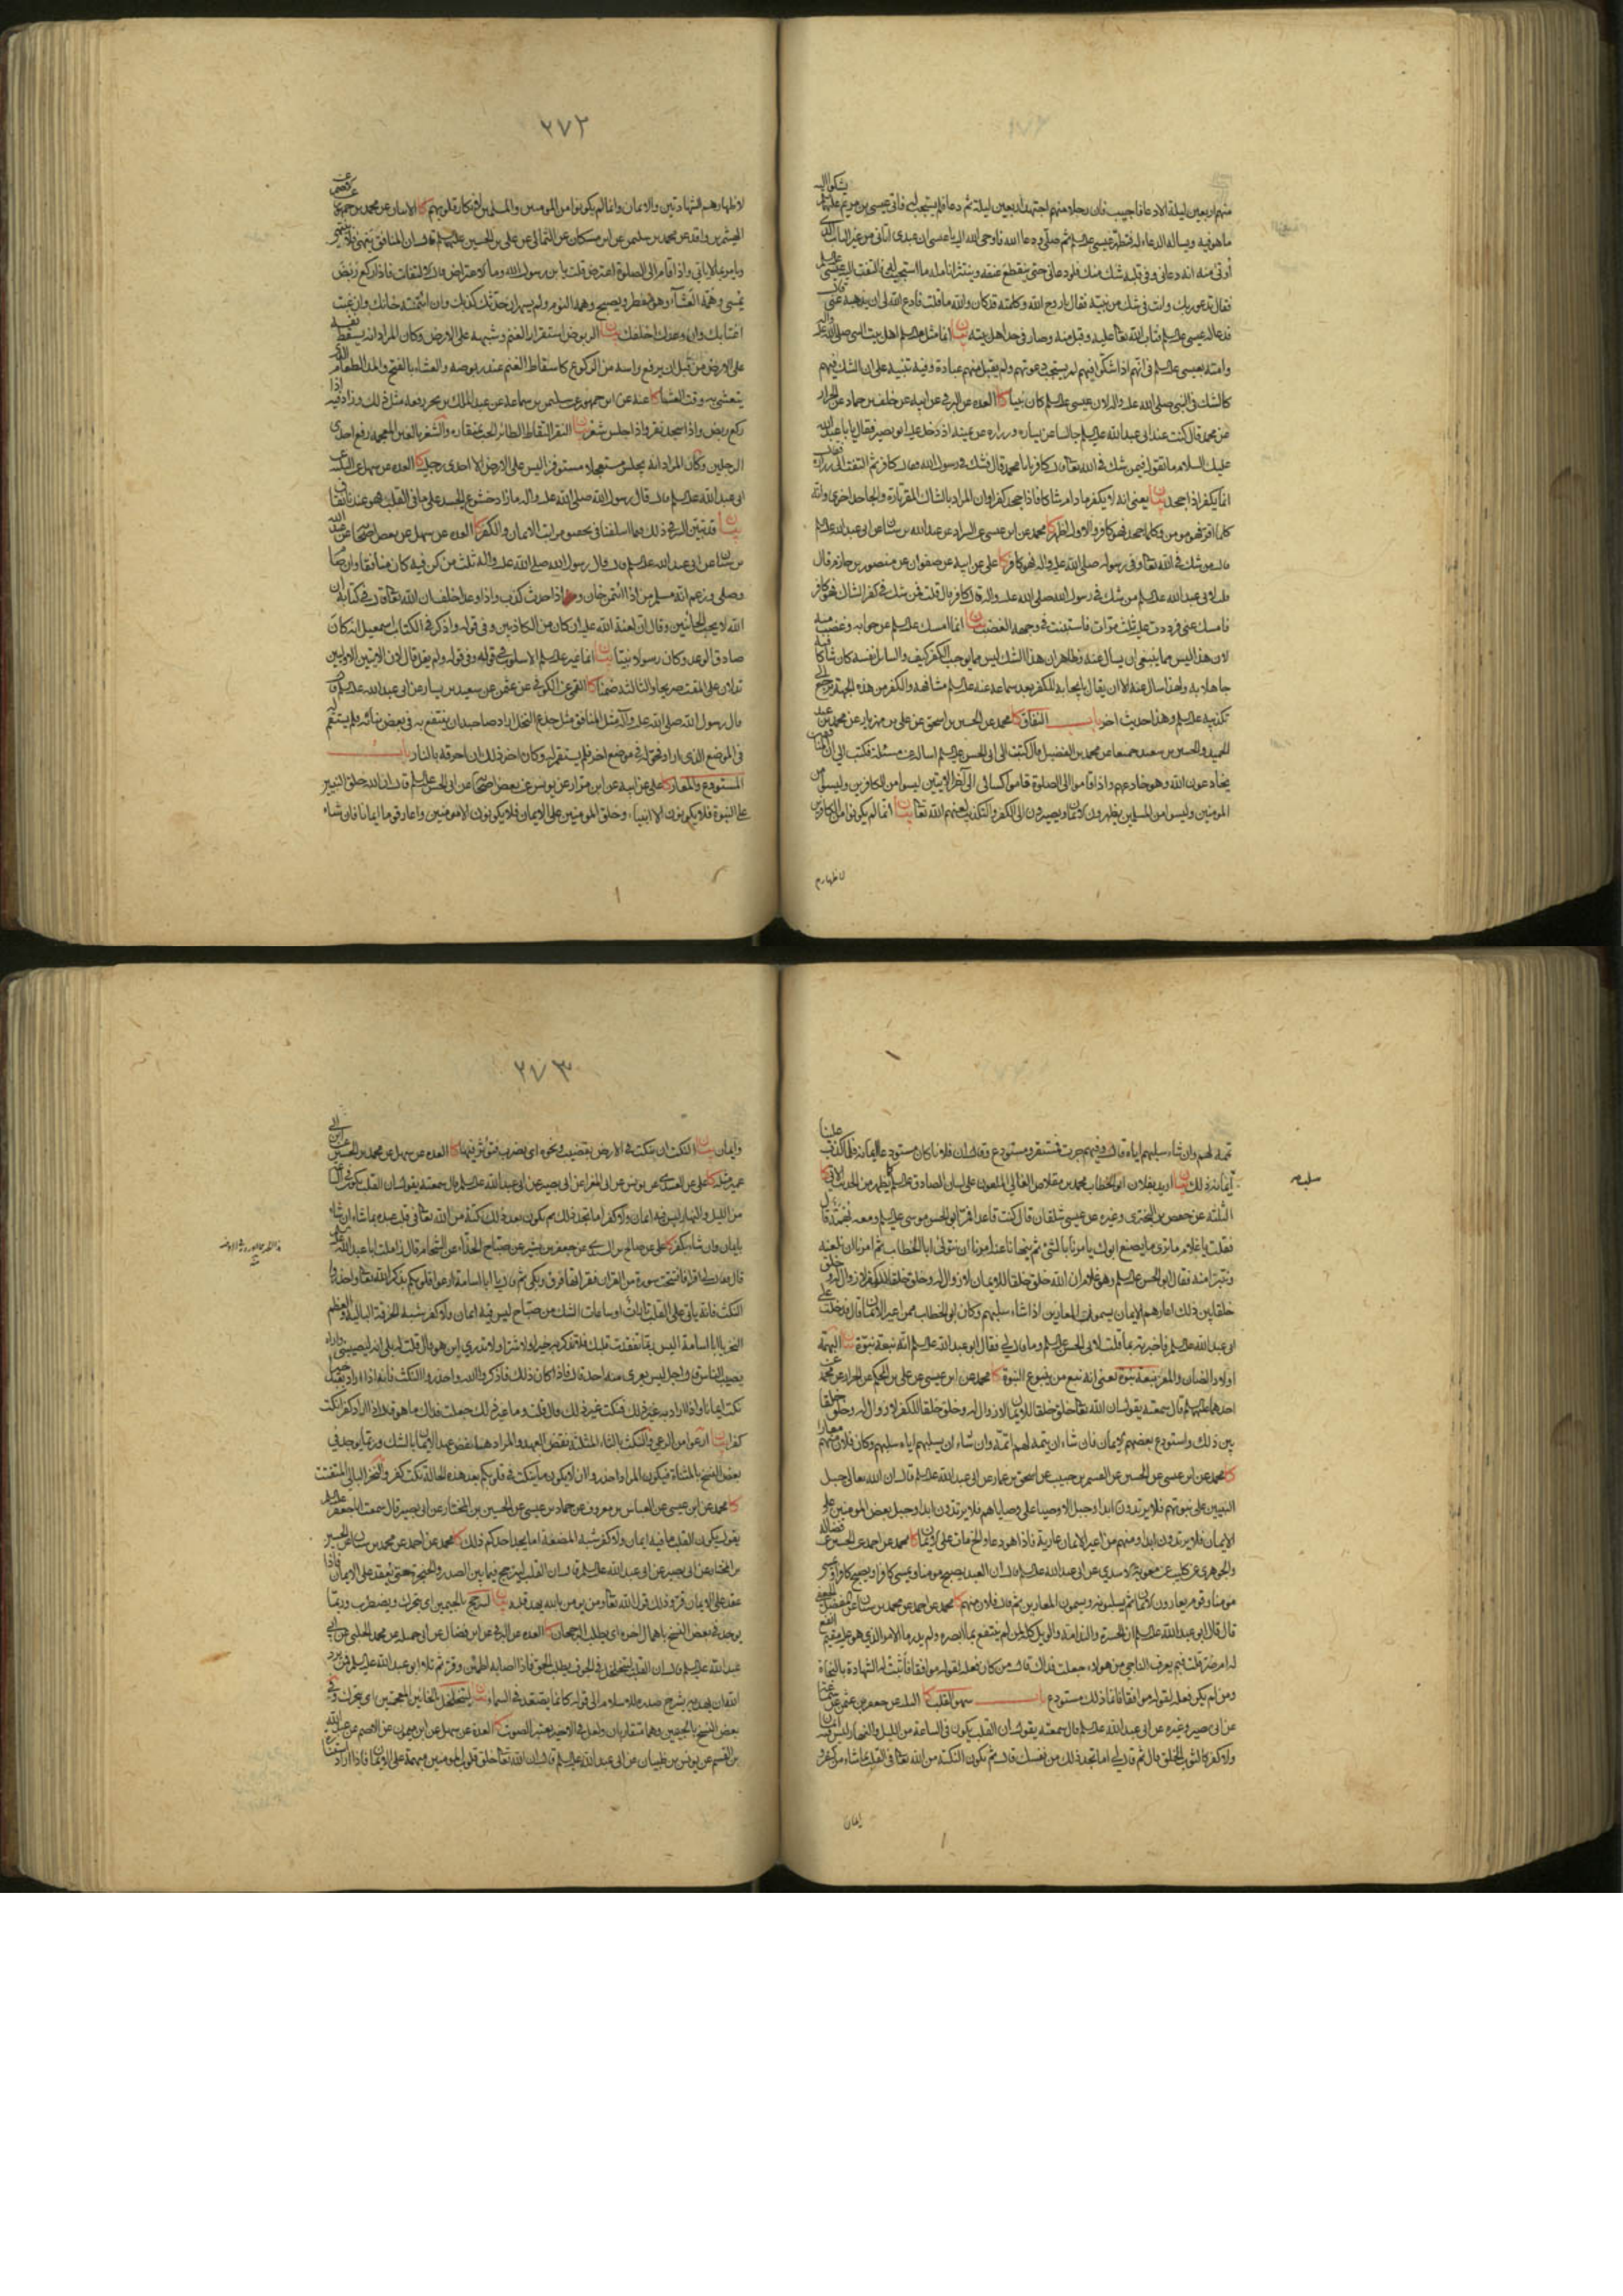 منهم اربعين ليلة الا دعا فاجيب فان رجلا منهم اجتهد اربعين ليلة ثم دعا فلم يستجب له فاتى عيسى بن مريم عليهما يشكو اليه
ما هو فيه ويساله الدعاء له فتطهر عيسى وصلى ودعا الله فاوحى الله اليه يا عيسى ان عبدى اتانى من غير الباب الذى
اوتى منه انه دعانى وفى قلبه شك منك فلو دعانى حتى ينقطع عنقه وينتثر انامله ما استجبت له فالتفت اليه عيسى
فقال تدعو ربك وانت فى شك من نبيه فقال يا روح الله وكلمته قد كان والله ما قلت فادع الله لى ان يذهب به عنى
فدعا له عيسى فتاب الله عليه وقبل منه وصار فى حد اهل بيته بيان انما مثل اهل بيت النبى صلى الله عليه
وامته بعيسى فى انهم اذا شكوا فيهم لم يستجب دعوتهم ولم يقبل منهم عبادة وفيه تنبيه على ان الشك فيهم
كالشك فى النبى صلى الله عليه واله لان عيسى كان نبيا كا العدة عن البرقى عن ابيه عن خلف بن حماد عن الخراز
عن محمد قال كنت عند ابى عبد الله جالسا عن يساره وزراره عن يمينه اذ دخل عليه ابو بصير فقال يا با عبد الله
عليك السلام ما تقول فيمن شك فى الله تعالى قال كافر يا با محمد قال فشك فى رسول الله فقال كافر ثم التفت الى زراره
انما يكفر اذا جحد بيان يعنى انه لا يكفر ما دام شاكا فاذا جحد كفر او ان المراد بالشاك المقر تارة والجاحد اخرى وانه
كلما اقر فهو مومن وكلما جحد فهو كافر والاول اظهر كا محمد عن ابن عيسى عن السراد عن عبد الله بن سنان عن ابى عبد الله
قال من شك فى الله تعالى وفى رسوله صلى الله عليه واله فهو كافر كا على عن ابيه عن صفوان عن منصور بن حازم قال
قلت لابى عبد الله من شك فى رسول الله صلى الله عليه واله قال كافر قال قلت فمن شك فى كفر الشاك فهو كافر
فامسك عنى فرددت عليه ثلث مرات فاستبنت فى وجهه الغضب بيان انما امسك عن جوابه وغضب
لان هذا ليس مما ينبغى ان يسال عنه وظاهر ان هذا الشك ليس مما يوجب الكفر كيف والسائل نفسه كان شاكا
جاهلا به ولهذا سال عنه الا ان يقال بايجابه للكفر بعد سماعه عنه مشافهة والكفر من هذه الجهة يرجع الى
تكذيبه وهذا حديث اخر باب النفاق كا محمد عن الحسين بن اسحق عن على بن مهزيار عن محمد بن عبد
الحميد والحسين بن سعيد جميعا عن محمد بن الفضيل قال كتبت الى ابى الحسن اساله عن مسئلة فكتب الى ان المنافقين
يخادعون الله وهو خادعهم واذا قاموا الى الصلوة قاموا كسالى الى اخر الايتين ليسوا من الكافرين وليسوا من
المومنين وليسوا من المسلمين يظهرون الايمان ويصيرون الى الكفر والتكذيب لعنهم الله تعالى بيان انما لم يكونوا من الكافرين
لاظهارهم
٢٧٢
لاظهارهم الشهادتين والايمان وانما لم يكونوا من المومنين والمسلمين لانكار قلوبهم كا الاثنان عن محمد بن جمهور عن الاصم عن
الهيثم بن واقد عن محمد بن سليمن عن ابن مسكان عن الثمالى عن على بن الحسين قال ان المنافق ينهى ولا ينتهى
ويامر بما لا ياتى واذا قام الى الصلوة اعترض قلت يا بن رسول الله وما الاعتراض قال الالتفات فاذا ركع ربض
يمسى وهمه العشاء وهو مفطر ويصبح وهمه النوم ولم يسهر ان حدثك كذبك وان ائتمنته خانك وان غبت
اغتابك وان وعدك اخلفك بيان الربوض استقرار الغنم وشبهه على الارض وكان المراد انه يسقط نفسه
على الارض من قبل ان يرفع راسه من الركوع كاسقاط الغنم عند ربوضه والعشاء بالفتح والمد الطعام الذى
يتعشى به وقت العشاء كا عنه عن ابن جمهور عن سليمن بن سماعة عن عبد الملك بن بحر رفعه مثل ذلك وزاد فيه اذا
ركع ربض واذا سجد نقر واذا جلس شغر بيان النقر التقاط الطائر الحب بمنقاره والشغر بالغين المعجمه رفع احدى
الرجلين وكان المراد انه يجلس مستعجلا مستوفزا ليس على الارض الا احدى رجليه كا العدة عن سهل عن
ابى عبد الله قال قال رسول الله صلى الله عليه واله ما زاد خشوع الجسد على ما فى القلب فهو عندنا نفاق
بيان قد تبين السر فى ذلك مما اسلفنا فى تحقيق مراتب الايمان والكفر كا العدة عن سهل عن بعض اصحابنا عن عبد الله
بن سنان عن ابى عبد الله قال قال رسول الله صلى الله عليه واله ثلث من كن فيه كان منافقا وان صام
وصلى وزعم انه مسلم من اذا ائتمن خان واذا حدث كذب واذا وعد اخلف ان الله تعالى قال فى كتابه ان
الله لا يحب الخائنين وقال ان لعنة الله عليه ان كان من الكاذبين وفى قوله واذكر فى الكتاب اسمعيل انه كان
صادق الوعد وكان رسولا نبيا بيان انما غير الاسلوب فى قوله وفى قوله ولم يقل قال لان الايتين الاوليين
تدلان على المقت صريحا والثالثة ضمنا كا القمى عن الكوفى عن عثمن عن سعيد بن يسار عن ابى عبد الله قال
قال رسول الله صلى الله عليه واله مثل المنافق مثل جذع النخل اراد صاحبه ان ينتفع به فى بعض بنائه فلم يستقم
فى الموضع الذى اراد فحوله فى موضع اخر فلم يستقم له وكان اخر ذلك ان احرقه بالنار باب
المستودع والمعار كا على عن ابيه عن ابن مرار عن يونس عن بعض اصحابنا عن ابى الحسن قال ان الله خلق النبيين
على النبوة فلا يكونون الا انبياء وخلق المومنين على الايمان فلا يكونون الا مومنين واعار قوما ايمانا فان شاء
تممه لهم وان شاء سلبهم اياه قال وفيهم جرت فمستقر ومستودع وقال ان فلانا كان مستودعا ايمانه فلما كذب علينا
سلب ايمانه ذلك بيان اريد بفلان ابو الخطاب محمد بن مقلاص الغالى الملعون على لسان الصادق كما يظهر من الحديث الاتى كا
الثلثة عن حفص بن البخترى وغيره عن عيسى شلقان قال كنت قاعدا فمر ابو الحسن موسى ومعه بهمة قال
فقلت يا غلام ما ترى ما يصنع ابوك يامرنا بالشئ ثم ينهانا عنه امرنا ان نتولى ابا الخطاب ثم امرنا ان نلعنه
ونتبرا منه فقال ابو الحسن وهو غلام ان الله خلق خلقا للايمان لا زوال له وخلق خلقا للكفر لا زوال له وخلق
خلقا بين ذلك اعارهم الايمان يسمون المعارين اذا شاء سلبهم وكان ابو الخطاب ممن اعير الايمان قال فدخلت على
ابى عبد الله فاخبرته بما قلت لابى الحسن وما قال لى فقال ابو عبد الله انه نبعة نبوة بيان البهمة
اولاد الضان والمعز نبعة نبوة يعنى انه نبع من ينبوع النبوة كا محمد عن ابن عيسى عن على بن الحكم عن الخراز عن محمد عن
احدهما قال سمعته يقول ان الله تعالى خلق خلقا للايمان لا زوال له وخلق خلقا للكفر لا زوال له وخلق خلقا
بين ذلك واستودع بعضهم الايمان فان شاء ان يتمه لهم اتمه وان شاء ان يسلبهم اياه سلبهم وكان فلان منهم معارا
كا محمد عن ابن عيسى عن الحسين عن القسم بن حبيب عن اسحق بن عمار عن ابى عبد الله قال ان الله تعالى جبل
النبيين على نبوتهم فلا يرتدون ابدا وجبل الاوصيا على وصاياهم فلا يرتدون ابدا وجبل بعض المومنين على
الايمان فلا يرتدون ابدا ومنهم من اعير الايمان عارية فاذا هو دعا والح مات على الايمان كا محمد عن احمد عن الحسين عن فضالة
والجوهرى عن كليب بن معوية الاسدى عن ابى عبد الله قال ان العبد يصبح مومنا ويمسى كافرا ويصبح كافرا ويمسى
مومنا وقوم يعارون الايمان ثم يسلبونه ويسمون المعارين ثم قال فلان منهم كا محمد عن احمد عن محمد بن سنان عن المفضل الجعفى
قال قال ابو عبد الله ان الحسرة والندامة والويل كله لمن لم ينتفع بما ابصره ولم يدر ما الامر الذى هو عليه مقيم انفع
له ام ضر قلت فبم يعرف الناجى من هؤلاء جعلت فداك قال من كان فعله لقوله موافقا فاثبت له الشهادة بالنجاة
ومن لم يكن فعله لقوله موافقا فانما ذلك مستودع باب سهو القلب كا الثلثة عن جعفر بن عثمن عن سماعة
عن ابى بصير وغيره عن ابى عبد الله قال سمعته يقول ان القلب يكون فى الساعة من الليل والنهار ليس فيه ايمان
ولا كفر كالثوب الخلق قال ثم قال لى اما تجد ذلك من نفسك قال ثم تكون النكتة من الله تعالى فى القلب بما شاء من كفر
ايمان
٢٧٣
وايمان بيان النكت ان ينكت فى الارض بقضيب ونحوه اى يضرب فيؤثر فيها كا العدة عن سهل عن محمد بن الحسين عن ابن ابى
عمير مثله كا على عن العبيدى عن يونس عن ابى المغرا عن ابى بصير عن ابى عبد الله قال سمعته يقول ان القلب يكون فى الساعة
من الليل والنهار ليس فيه ايمان ولا كفر اما تجد ذلك ثم يكون بعد ذلك نكتة من الله تعالى فى قلب عبده بما شاء ان شاء
بايمان وان شاء بكفر كا على عن صالح بن السندى عن جعفر بن بشير عن صباح الحذاء عن الشحام قال زاملت ابا عبد الله
قال فقال لى اقرا فافتتحت سورة من القران فقراتها فرق وبكى ثم قال يا ابا اسامة ارعوا قلوبكم بذكر الله تعالى واحذروا
النكث فانه ياتى على القلب تارات او ساعات الشك من صباح ليس فيه ايمان ولا كفر شبه الخرقة البالية والعظم
النخر يا ابا اسامة اليس ربما تفقدت قلبك فلا تذكر به خيرا ولا شرا ولا تدرى اين هو قال قلت له بلى انه ليصيبنى واراه
يصيب الناس قال اجل ليس يعرى منه احد قال فاذا كان ذلك فاذكروا الله واحذروا النكث فانه اذا اراد بعبد خيرا
نكت ايمانا واذا اراد به غير ذلك نكت غير ذلك قال قلت وما غير ذلك جعلت فداك ما هو قال اذا اراد كفرا نكت
كفرا بيان ارعوا من الرعى والنكث بالثاء المثلثة نقض العهد والمراد هنا نقض عهد الايمان بالشك وربما يوجد فى
بعض النسخ بالمثناة فيكون المراد احذروا ان لا يكون ما ينكت فى قلوبكم بعد هذه الحالة نكت كفر والنخر البالى المتفتت
كا محمد عن ابن عيسى عن العباس بن معروف عن حماد بن عيسى عن الحسين بن المختار عن ابى بصير قال سمعت ابا جعفر
يقول يكون القلب ما فيه ايمان ولا كفر شبه المضغة اما يجد احدكم ذلك كا محمد عن احمد عن محمد بن سنان عن الحسين
بن المختار عن ابى بصير عن ابى عبد الله قال ان القلب ليترجج فيما بين الصدر والحنجرة حتى يعقد على الايمان فاذا
عقد على الايمان قر وذلك قول الله تعالى ومن يومن بالله يهد قلبه بيان ليترجج بالجيمين اى يتحرك ويضطرب وربما
يوجد فى بعض النسخ باهمال اخره اى يطلب الرجحان كا العدة عن البرقى عن ابن فضال عن ابى جميلة عن محمد الحلبى عن ابى
عبد الله قال ان القلب ليتخلخل فى الجوف يطلب الحق فاذا اصابه اطمئن وقر ثم تلا ابو عبد الله فمن يرد
الله ان يهديه يشرح صدره للاسلام الى قوله كانما يصعد فى السماء بيان ليتخلخل بالخائين المعجمتين اى يتحرك وفى
بعض النسخ بالجيمين وهما متقاربان ولعل فى الاخير يعتبر الصوت كا العدة عن سهل عن ابن شمون عن الاصم عن عبد الله
بن القسم عن يونس بن ظبيان عن ابى عبد الله قال ان الله تعالى خلق قلوب المومنين مبهمة على الايمان فاذا اراد استنارة